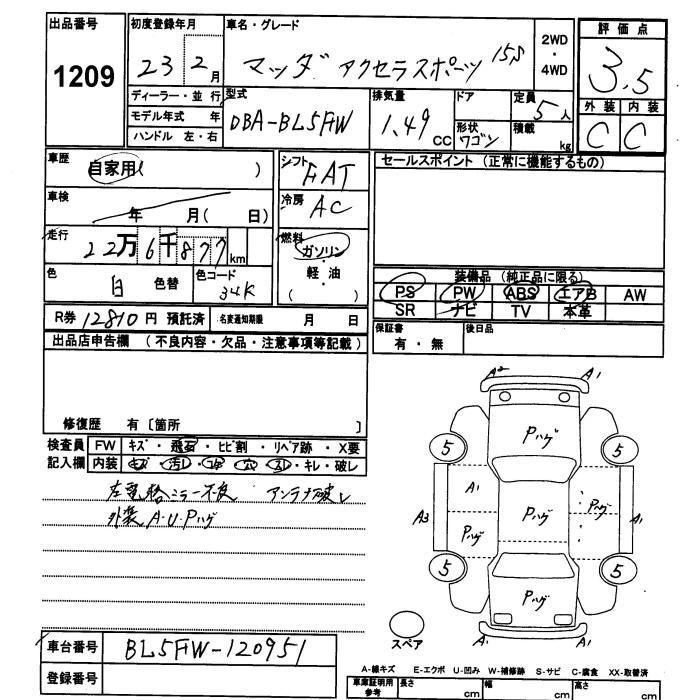 出品番号
1209
初度登録年月
23年2月
車名・グレード
マツダ アクセラスポーツ 15S
2WD・
4WD
評価点
3.5
外装 内装
C C
ディーラー・並行
モデル年式 年
ハンドル 左・右
型式
DBA-BL5FW
排気量
1.49cc
ドア
形状
ワゴン
定員
5人
積載
kg
車歴
自家用( )
車検
年 月( 日)
走行
22万6千877km
色
白
色替
色コード
34K
シフト
FAT
冷房
AC
燃料
ガソリン
軽・油
( )
セールスポイント (正常に機能するもの)
装備品 (純正品に限る)
PS PW ABS エアB AW
SR ナビ TV 本革
R券 12810円 預託済
名変通知期限 月 日
保証書
有・無
後日品
出品店申告欄 (不良内容・欠品・注意事項等記載)
修復歴 有〔箇所 〕
検査員
記入欄
FW キズ・飛石・ヒビ割・リペア跡・X要
内装 キズ・汚レ・コゲ・穴・スレ・キレ・破レ
左電格ミラー不良 アンテナ破レ
外装A・U・Pハゲ
A2 A1
Pハゲ
5 5
A1
A3 Pハゲ Pハゲ Pハゲ A1
5 5
Pハゲ
A1 A1
スペア
車台番号
BL5FW-120951
登録番号
A-線キズ E-エクボ U-凹み W-補修跡 S-サビ C-腐食 XX-取替済
車庫証明用
参考
長さ cm
幅 cm
高さ cm